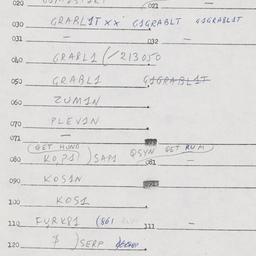 020 021 —
030 GRABL1T XX G1GRABLT G1GRABL1T
031 — 032 —
040 GRABL1 (/213050
050 GRABL1 G1GRABL1T
060 ZUM1N
070 PLEV1N
071 —
(GET HUND QSYN GET RUM)
080 KOP1) SAP1 081 —
090 KOS1N
100 KOS1
110 FURKP1 (861 111 —
120 $ )SERP